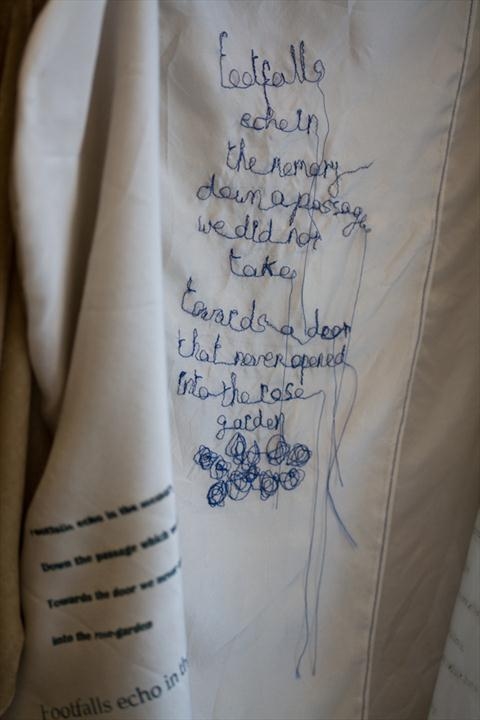 footfalls
echo in
the memory
down a passage
we did not
take
towards a door
that never opened
into the rose
garden
Footfalls echo in the memory
Down the passage which w
Towards the door we never
Into the rose-garden
Footfalls echo in th